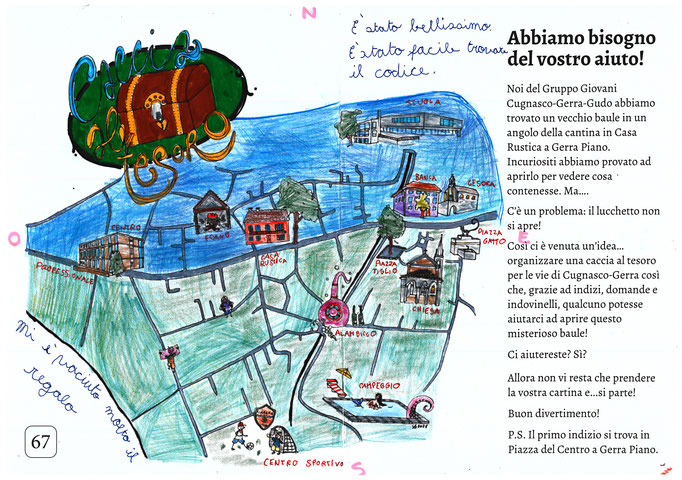 N
È stato bellissimo.
È stato facile trovare
il codice.
Caccia
al
tesoro
SCUOLA
BANCA
CESORA
CENTRO
PROFESSIONALE
ASILO
CASA
RUSTICA
PIAZZA
TIGLIO
PIAZZA
GATTO
CHIESA
O
E
ALAMBICCO
CAMPEGGIO
CENTRO SPORTIVO
S
Mi è piaciuto molto il
regalo
67
Abbiamo bisogno
del vostro aiuto!
Noi del Gruppo Giovani
Cugnasco-Gerra-Gudo abbiamo
trovato un vecchio baule in un
angolo della cantina in Casa
Rustica a Gerra Piano.
Incuriositi abbiamo provato ad
aprirlo per vedere cosa
contenesse. Ma....
C'è un problema: il lucchetto non
si apre!
Così ci è venuta un'idea...
organizzare una caccia al tesoro
per le vie di Cugnasco-Gerra così
che, grazie ad indizi, domande e
indovinelli, qualcuno potesse
aiutarci ad aprire questo
misterioso baule!
Ci aiutereste? Sì?
Allora non vi resta che prendere
la vostra cartina e...si parte!
Buon divertimento!
P.S. Il primo indizio si trova in
Piazza del Centro a Gerra Piano.